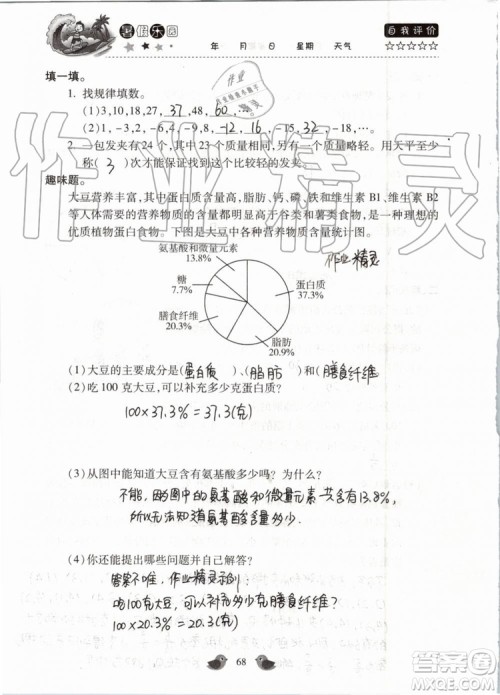 暑假乐园
年 月 日 星期 天气
自我评价
☆☆☆☆☆
填一填。
1. 找规律填数。
(1)3,10,18,27,37,48,60…
(2)1,-3,2,-6,4,-9,8,-12,16,-15,-32…
2. 一包发夹有24个,其中23个质量相同,另有一个质量略轻。用天平至少
称( 3 )次才能保证找到这个比较轻的发夹。
趣味题。
大豆营养丰富,其中蛋白质含量高,脂肪、钙、磷、铁和维生素 B1、维生素 B2
等人体需要的营养物质的含量明显高于谷类和薯类食物,被营养学家推荐为
优质植物蛋白食物。下图是大豆中各种营养物质含量统计图。
氨基酸和微量元素
13.8%
作业精灵
糖
7.7%
蛋白质
37.3%
膳食纤维
20.3%
脂肪
20.9%
(1)大豆的主要成分是( 蛋白质 )、( 脂肪 )和( 膳食纤维 )
(2)吃 100 克大豆,可以补充多少克蛋白质?
100×37.3%=37.3(克)
(3)从图中能知道大豆含有氨基酸多少吗? 为什么?
不能,因图中氨基酸和微量元素一共含有13.8%,
所以无法知道氨基酸含量多少.
(4)你还能提出哪些问题并自己解答?
答案不唯一,作业精灵示例:
吃100克大豆,可以补充多少克膳食纤维?
100×20.3%=20.3(克)
68
作业精灵
答案圈
MXQE.COM